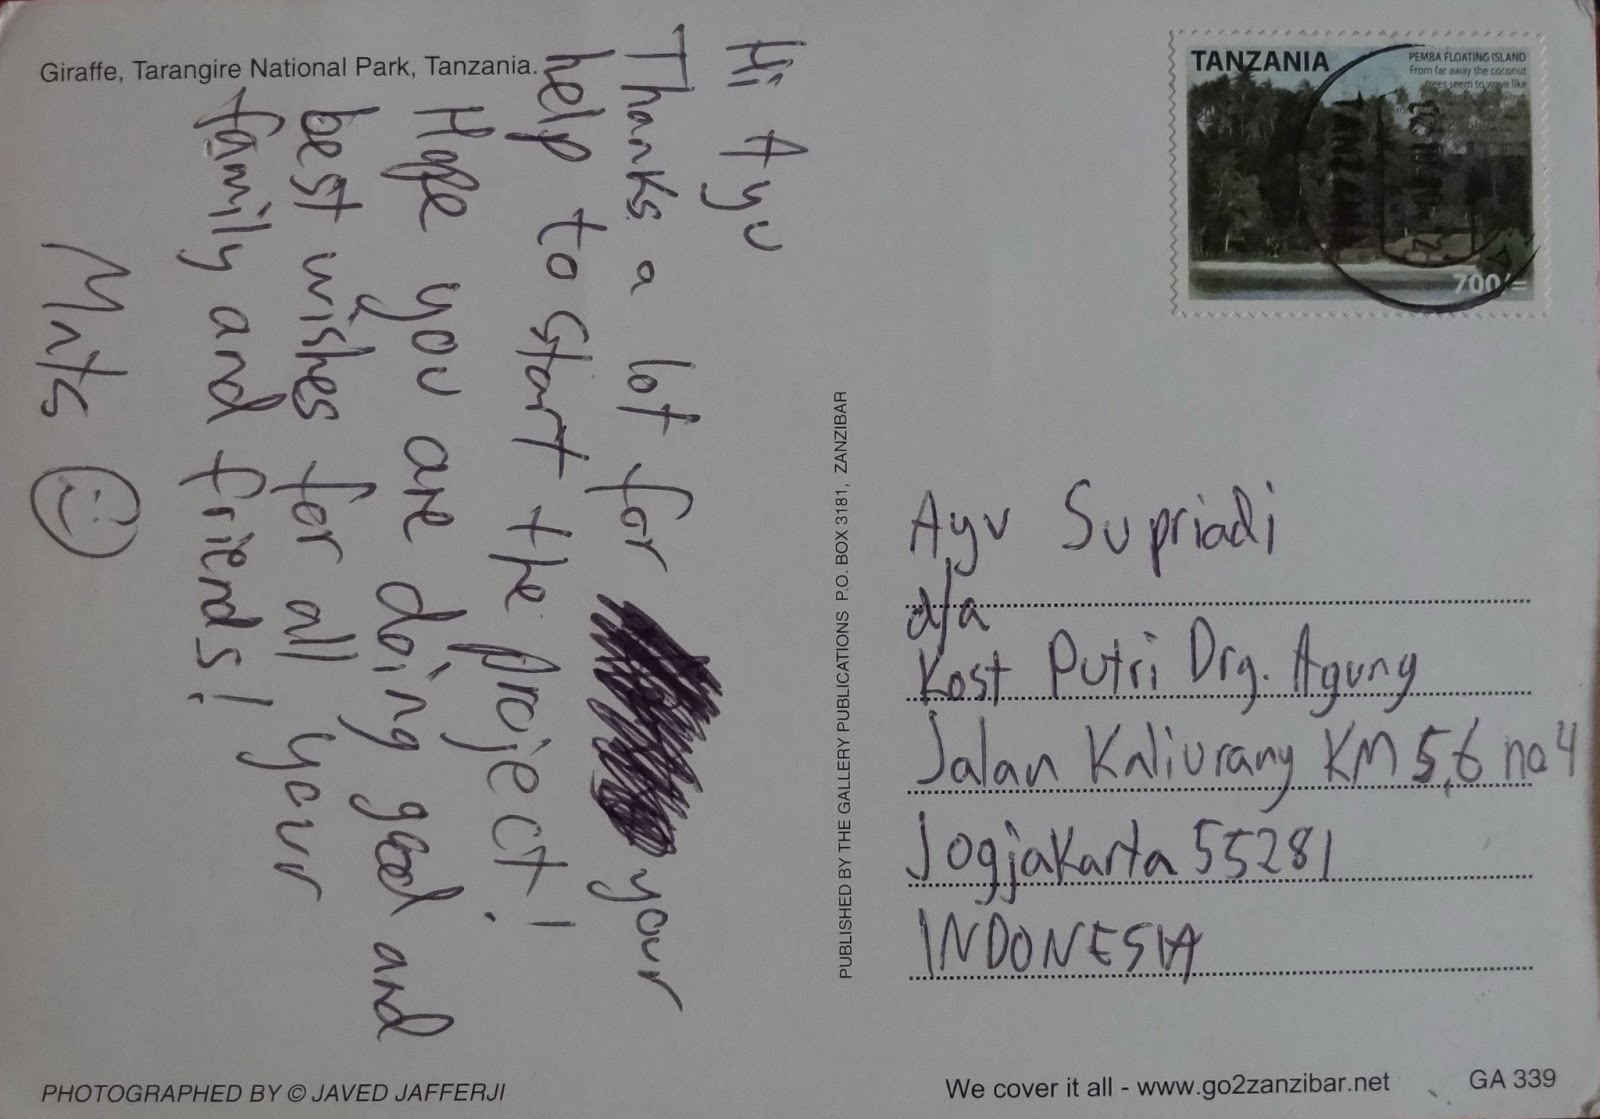 Giraffe, Tarangire National Park, Tanzania.
Hi Ayu
Thanks a lot for your
help to start the project!
Hope you are doing good and
best wishes for all your
family and friends!
TANZANIA
PEMBA FLOATING ISLAND
From far away the coconut
trees seem to wave like
700/=
PUBLISHED BY THE GALLERY PUBLICATIONS P.O. BOX 3181, ZANZIBAR
Ayu Supriadi
d/a
Kost Putri Drg. Agung
Jalan Kaliurang KM 5,6 no 4
Jogjakarta 55281
INDONESIA
PHOTOGRAPHED BY © JAVED JAFFERJI
We cover it all - www.go2zanzibar.net
GA 339